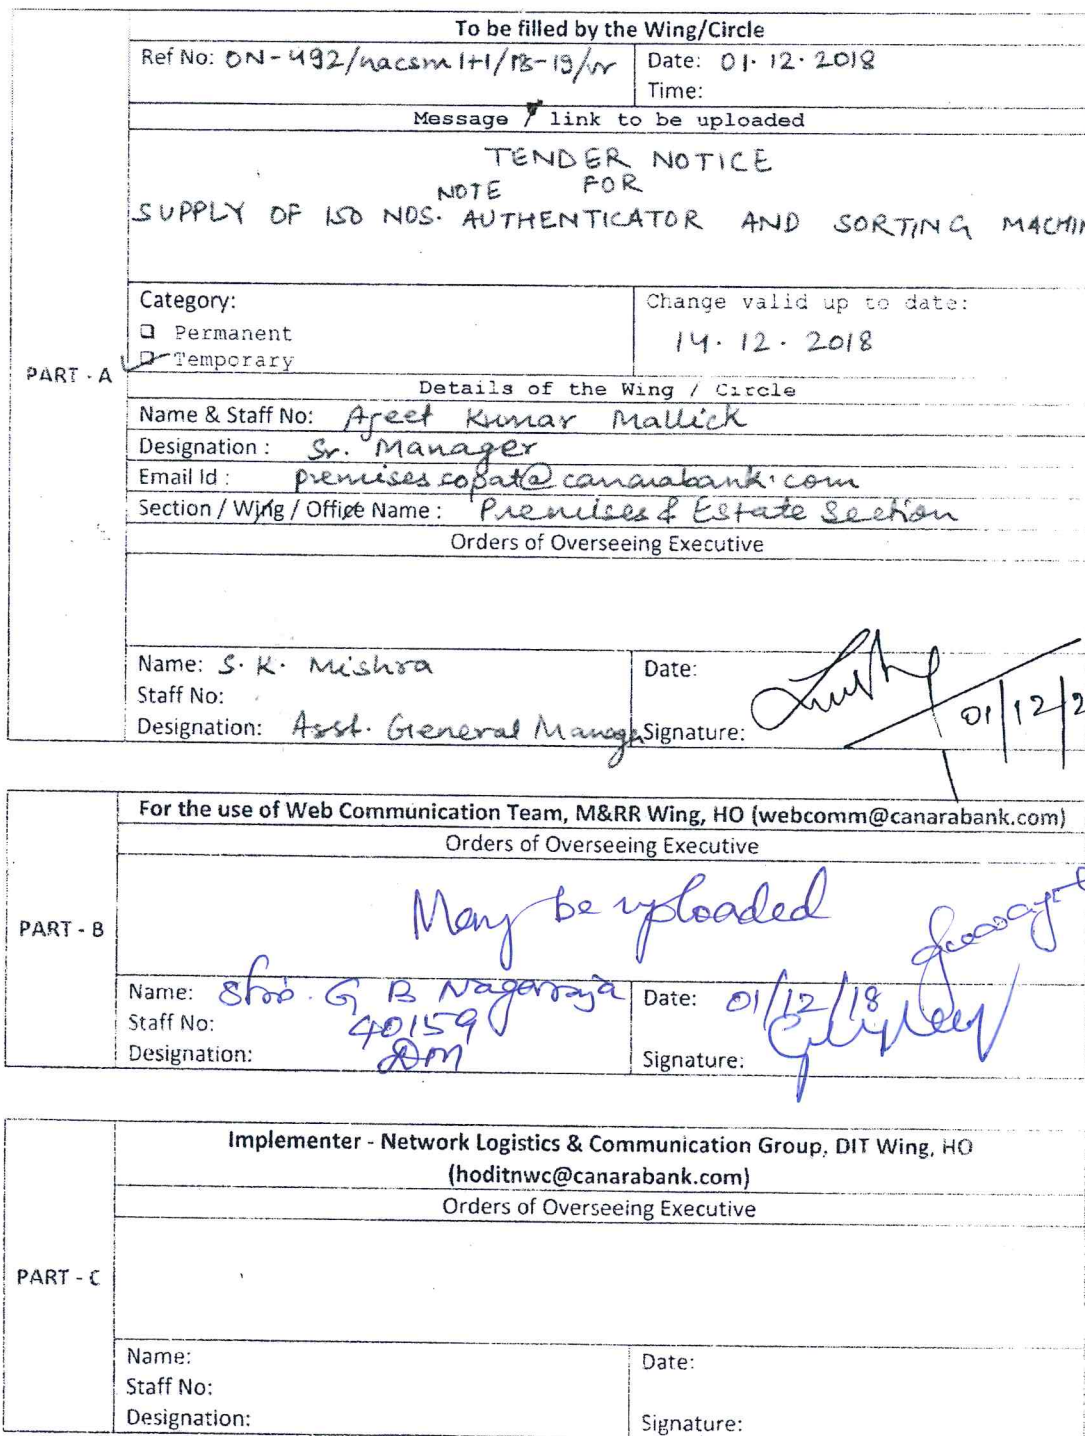 To be filled by the Wing/Circle
Ref No: ON-492/nacsm 1+1/18-19/vr Date: 01.12.2018
Time:
Message / link to be uploaded
TENDER NOTICE
FOR
NOTE
SUPPLY OF 150 NOS. AUTHENTICATOR AND SORTING MACHIN
Category: Change valid up to date:
Permanent
14.12.2018
Temporary
PART - A
Details of the Wing / Circle
Name & Staff No: Ajeet Kumar Mallick
Designation : Sr. Manager
Email Id : premises.copat@canarabank.com
Section / Wing / Office Name : Premises & Estate Section
Orders of Overseeing Executive
Name: S.K. Mishra Date:
Staff No:
Designation: Asst. General Manage Signature:
01/12/2
For the use of Web Communication Team, M&RR Wing, HO (webcomm@canarabank.com)
Orders of Overseeing Executive
May be uploaded
PART - B
Name: G B Nagaraja Date: 01/12/18
Staff No: 40159
Designation: DM Signature:
Implementer - Network Logistics & Communication Group, DIT Wing, HO
(hoditnwc@canarabank.com)
Orders of Overseeing Executive
PART - C
Name: Date:
Staff No:
Designation: Signature: